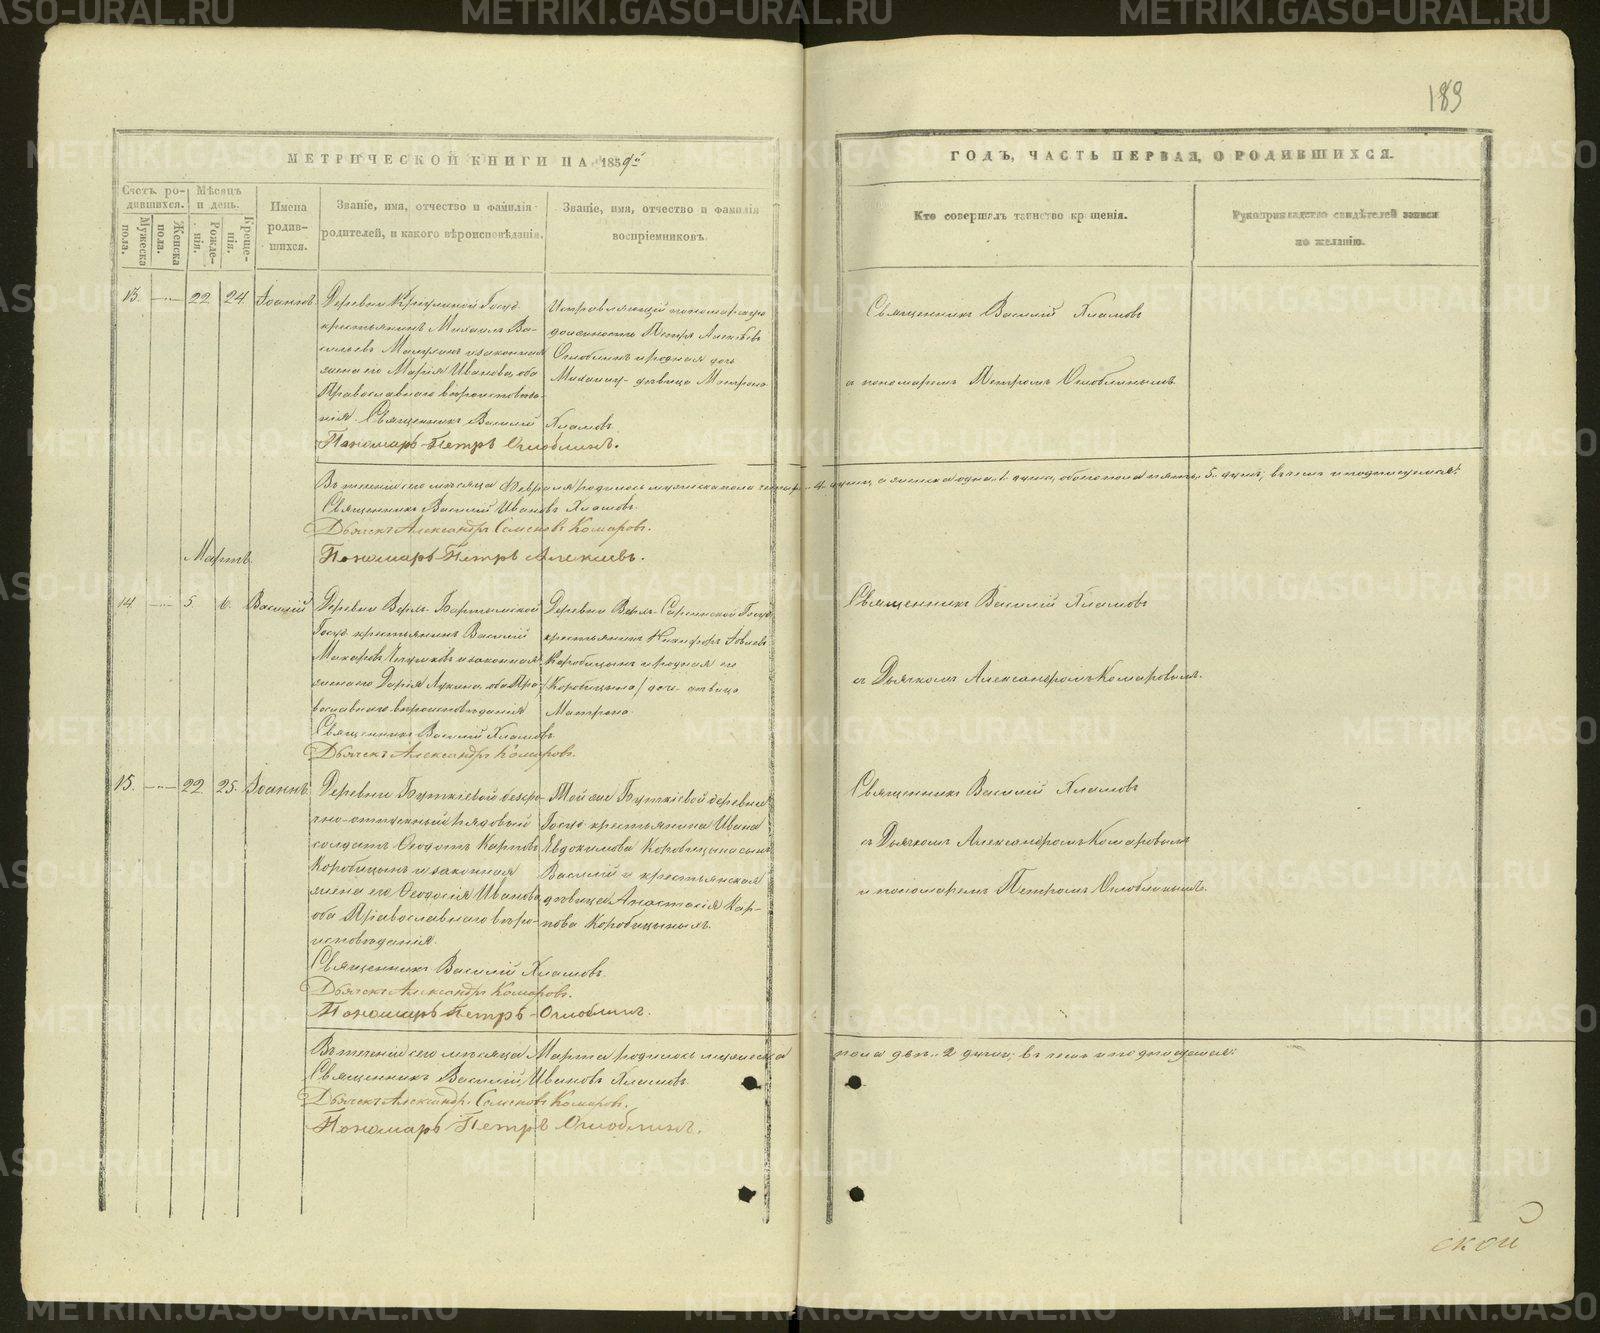 189
МЕТРИЧЕСКОЙ КНИГИ НА 1859й
ГОДЪ, ЧАСТЬ ПЕРВАЯ, О РОДИВШИХСЯ.
Счетъ ро-
дившихся.
Мужеска
пола.
Женска
пола.
Мѣсяцъ
и день.
Рожде-
нія.
Креще-
нія.
Имена
родив-
шихся.
Званіе, имя, отчество и фамилія
родителей, и какого вѣроисповѣданія.
Званіе, имя, отчество и фамилія
воспріемниковъ.
Кто совершалъ таинство крещенія.
Рукоприкладство свидѣтелей записи
по желанію.
13. 22 24 Іоаннъ
Деревни Госуд.
крестьянинъ Михаилъ Ва-
сильевъ и законная
жена его Марія Иванова, оба
Православнаго вѣроисповѣда-
нія. Священникъ Василій Хламовъ
Пономарь Петръ Оглоблинъ.
Исправляющій пономарскую
должность Петръ Алексѣевъ
Оглоблинъ и родная дочь
Михаила дѣвица Матрона
Священникъ Василій Хламовъ
съ пономаремъ Петромъ Оглоблинымъ
Въ теченіи сего мѣсяца Февраля родилось мужеска пола четыре 4 души, а женска одна 1 душа, обоего пола пять 5 душъ; въ чемъ и подписуемся:
Священникъ Василій Ивановъ Хламовъ.
Дьячекъ Александръ Семеновъ Комаровъ.
Пономарь Петръ Алексіевъ.
Мартъ
14 5. 6. Василій
Деревни Верхъ-
Госуд. крестьянинъ Василій
Макаровъ и законная
жена его Дарія Лукина, оба Пра-
вославнаго вѣроисповѣданія
Священникъ Василій Хламовъ
Дьячекъ Александръ Комаровъ.
Деревни Верхъ- Госуд.
крестьянинъ Никифоръ
Коробицынъ и родная его
/Коробицына/ дочь дѣвица
Матрона.
Священникъ Василій Хламовъ
съ Дьячкомъ Александромъ Комаровымъ.
15. 22. 25. Іоаннъ
Деревни Буткіевой безсро-
чно-отпускный рядовый
солдатъ Ѳеодотъ Карповъ
Коробицынъ и законная
жена его Ѳеодосія Иванова,
оба Православнаго вѣро-
исповѣданія.
Священникъ Василій Хламовъ.
Дьячекъ Александръ Комаровъ.
Пономарь Петръ Оглоблинъ.
Той же Буткіевой деревни
Госуд. крестьянина Ивана
Евдокимова Коробицына сынъ
Василій и крестьянская
дѣвица Анастасія Кар-
пова Коробицыны.
Священникъ Василій Хламовъ
съ Дьячкомъ Александромъ Комаровымъ
и пономаремъ Петромъ Оглоблинымъ.
Въ теченіи сего мѣсяца Марта родилось мужеска пола двѣ 2 души; въ чемъ и подписуемся:
Священникъ Василій Ивановъ Хламовъ.
Дьячекъ Александръ Семеновъ Комаровъ.
Пономарь Петръ Оглоблинъ.
ской
METRIKI.GASO-URAL.RU